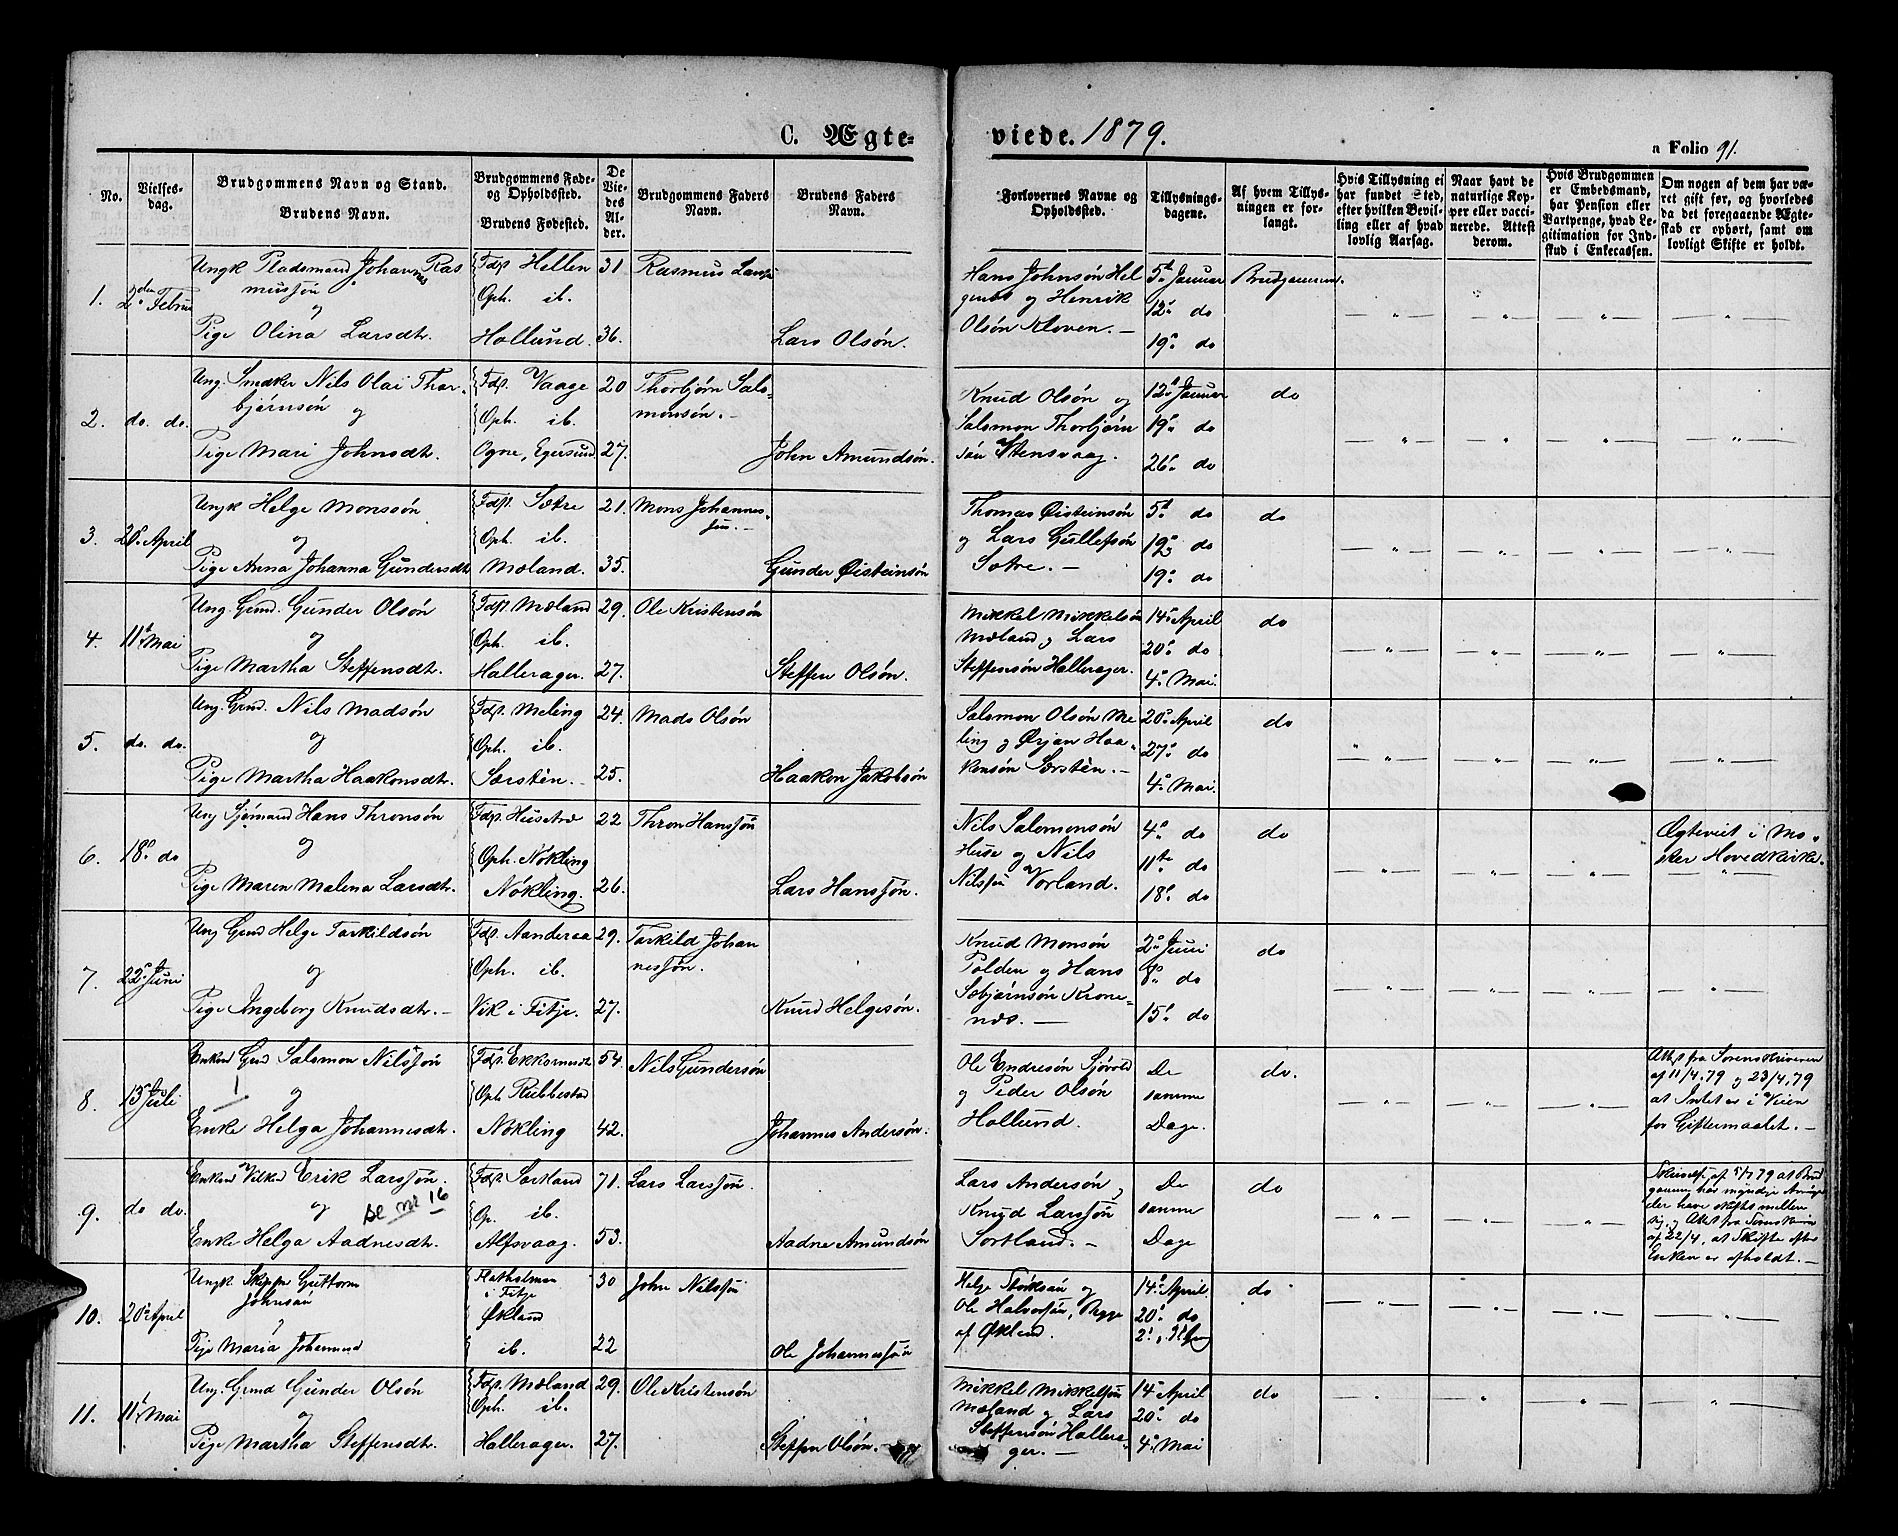 C. Ægte-
viede. 1879.
a Folio 91.
No.
Vielses-
dag.
Brudgommens Navn og Stand.
Brudens Navn.
Brudgommens Føde-
og Opholdssted.
Brudens Fødested.
De
Vie-
des
Al-
der.
Brudgommens Faders
Navn.
Brudens Faders
Navn.
Forlovernes Navne og
Opholdssted.
Tillysnings-
dagene.
Af hvem Tillys-
ningen er for-
langt.
Hvis Tillysning ei
har fundet Sted,
efter hvilken Bevil-
ling eller af hvad
lovlig Aarsag.
Naar havt de
naturlige Kop-
per eller vacci-
nerede. Attest
derom.
Hvis Brudgommen
er Embedsmand,
har Pension eller
Vartpenge, hvad Le-
gitimation for Ind-
skud i Enkecassen.
Om nogen af dem har væ-
ret gift før, og hvorledes
da det foregaaende Ægte-
skab er ophørt, samt om
lovligt Skifte er holdt.
1. 2den Febru
Ungk Pladsmand Johannes Ras
mussøn
og
Pige Olina Larsdtr.
Fdst. Hellen 31
Oph. ib.
Hollund. 36.
Rasmus Larss
Lars Olsøn.
Hans Johnsøn Hel
og Henrik
Olsøn Kloven. —
5te Januar
12. do
19. do
Brudgommen.
2. do. do.
Ung. Nils Olai Thor-
bjørnsøn og
Pige Mari Johnsdtr.
Fdst. Vaage 20
Oph. ib.
Ogne, Egersund 27.
Thorbjørn Salo-
monsøn. —
John Amundsøn.
Knud Olsøn og
Salomon Thorbjørn
søn Stensvaag.
12. Januar
19. do
26. do
do
3. 20. April
Ungk Helge Monssøn
og
Pige Anna Johanna Gundersdtr
Fdst. Sætre 21.
Oph. ib.
Mæland. 35.
Mons Johannes-
søn. —
Gunder Øisteinsøn
Thomas Øisteinsøn
og Lars Gullefsøn
Sotre. —
5t do
do
19. do
do
4. 11t Mai
Ung. Grmd. Gunder Olsøn
og
Pige Martha Steffensdtr.
Fdst. Mæland 29.
Oph. ib.
Hallerager. 27.
Ole Kristensøn
Steffen Olsøn.
Mikkel Mikkelsøn
Mæland og Lars
Steffensøn Hallerager.
14. April
20. do
4. Mai.
do
5. do. do.
Ung. Grmd. Nils Madsøn
og
Pige Martha Haakonsdtr.
Fdst. Meling 24.
Oph. ib.
Særsten. — 25.
Mads Olsøn
Haakon Jakobsøn
Salomon Olsøn Me
ling og Ørjan Haa-
konsøn Særsten. —
20. April
27. do
4. Mai.
do
6. 18. do
Ung Sjømand Hans Thronsøn
og
Pige Maren Malena Larsdtr.
Fdst. 22
Oph. Nökling
Nökling. 26.
Thron Hanssøn
Lars Hanssøn.
Nils Salomonsøn
Huse og Nils
Nilssøn Vorland.
4. do
11te do
18. do
do
Ægteviet i Mo-
ster Hovedkirke.
7. 22. Juni
Ung Grmd Helge Tarkildsøn
og
Pige Ingeborg Knudsdtr. —
Fdst. Aanderaa 29.
Oph. ib.
Vik i Fitje. 27.
Tarkild Johan
nessøn.
Knud Helgesøn.
Knud Monsøn
Polden og Hans
Sæbjørnsøn Krone-
næs. —
2. Juni
8. do
15. do
do
8. 13. Juli
Enkem Grmd Salomon Nilssøn
1 og
Enke Helga Johannesdtr.
Fdst. 54.
Oph Ribbestad
Nökling 42.
Nils Gundersøn
Johannes Andersøn.
Ole Endresøn Sjøvold
og Peder Olsøn
Hollund.
De
samme
Dage.
do.
Attest fra Sorenskriveren
af 11/4. 79 og 23/4. 79
at Intet er i Veien
for Giftermaalet. —
9. do do.
Enkem Erik Larssøn.
og se nr 16
Enke Helga Aadnesdtr.
Fdst. Sortland 71.
Op. ib.
Alfsvaag. 53.
Lars Larssøn.
Aadne Amundsøn
Lars Andersøn og
Knud Larssøn
Sortland. —
De
samme
Dage
do
af 5/7 79 at Brud
gommen har myndige Arvinger
der have skifts mellem
sig, og Attest fra
af 22/4, at Skifte efter
Enken er afholdt. —
10. 20. April
Ungk. Skipper Guttorm
Johnsøn
og
Pige Maria
i Fitje 30
Økland
ib. 22
John Nilssøn
Ole Johannessøn
Helge og
Ole Halvorssøn, Begge
af Økland.
14. April
20. do
do
11. 11t Mai
Ung. Grmd Gunder Olsøn
og
Pige Martha Steffensdtr.
Fdst. Mæland 29.
Oph. ib.
Hallerager. 27.
Ole Kristensøn
Steffen Olsøn. —
Mikkel Mikkelssøn
Mæland og Lars
Steffensøn Hallera-
ger. —
14. April
20. do
4. Mai
do